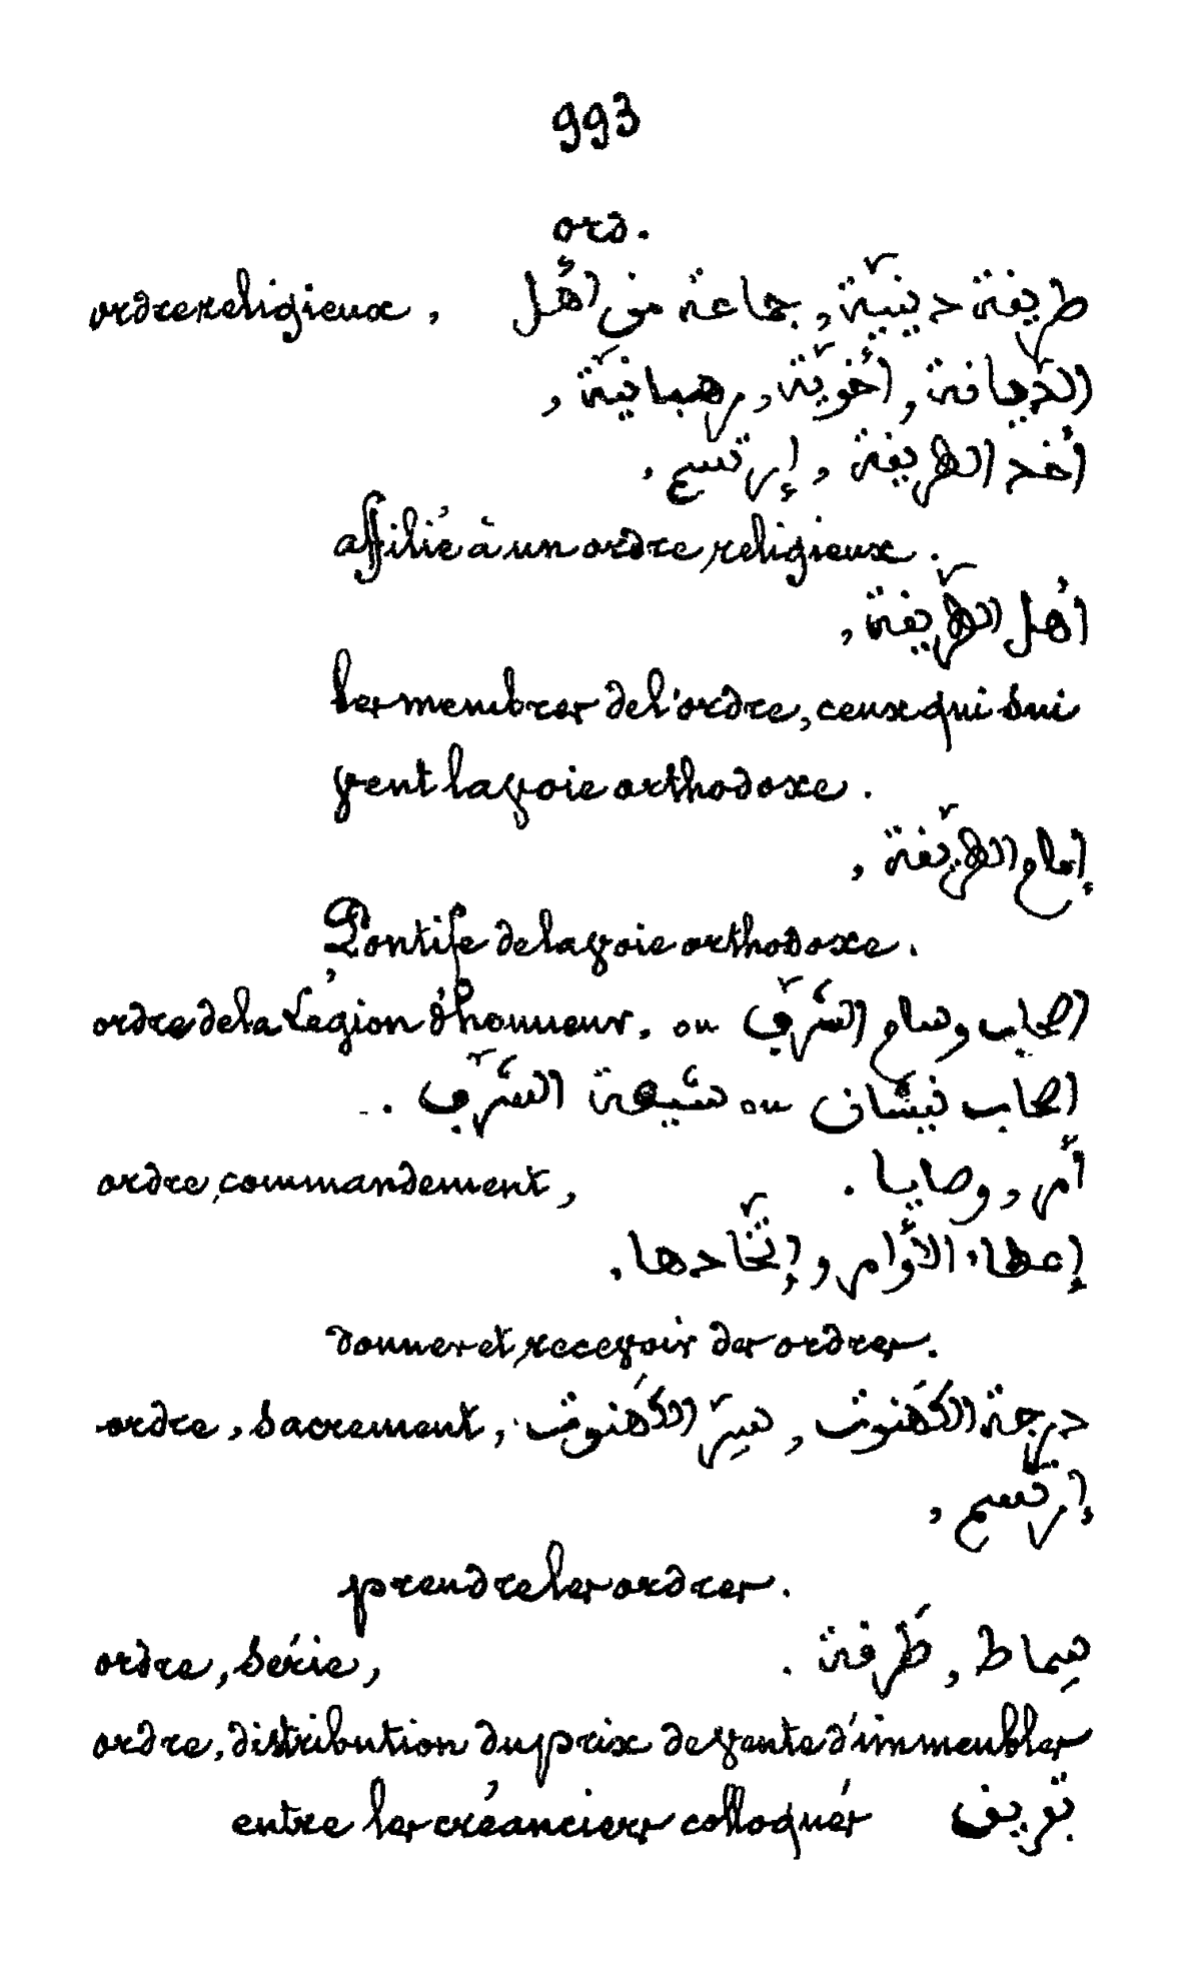 993
ord.
ordre religieux, طريفة دينيّة, جماعة من أهل
الدّيانة, أخويّة, رهبانيّة,
أخد الطريفة, إرتسم,
affilié à un ordre religieux.
أهل الطّريفة,
les membres de l'ordre, ceux qui sui
vent la voie orthodoxe.
إمام الطّريفة,
Pontife de la voie orthodoxe.
ordre de la Légion d'honneur. ou اصحاب وسام الشّرف
اصحاب نيشان ou شيعة الشّرف.
ordre, commandement, أمر, وصايا.
إعطاء الأوامر وإتّخادها.
donner et recevoir des ordres.
ordre, sacrement, درجة الكَهَنوت, سِرّ الكَهَنوت
إرتَسم,
prendre les ordres.
ordre, série, سِماط, طَرفة.
ordre, distribution du prix de vente d'immeubles
entre les créanciers colloqués تفريف